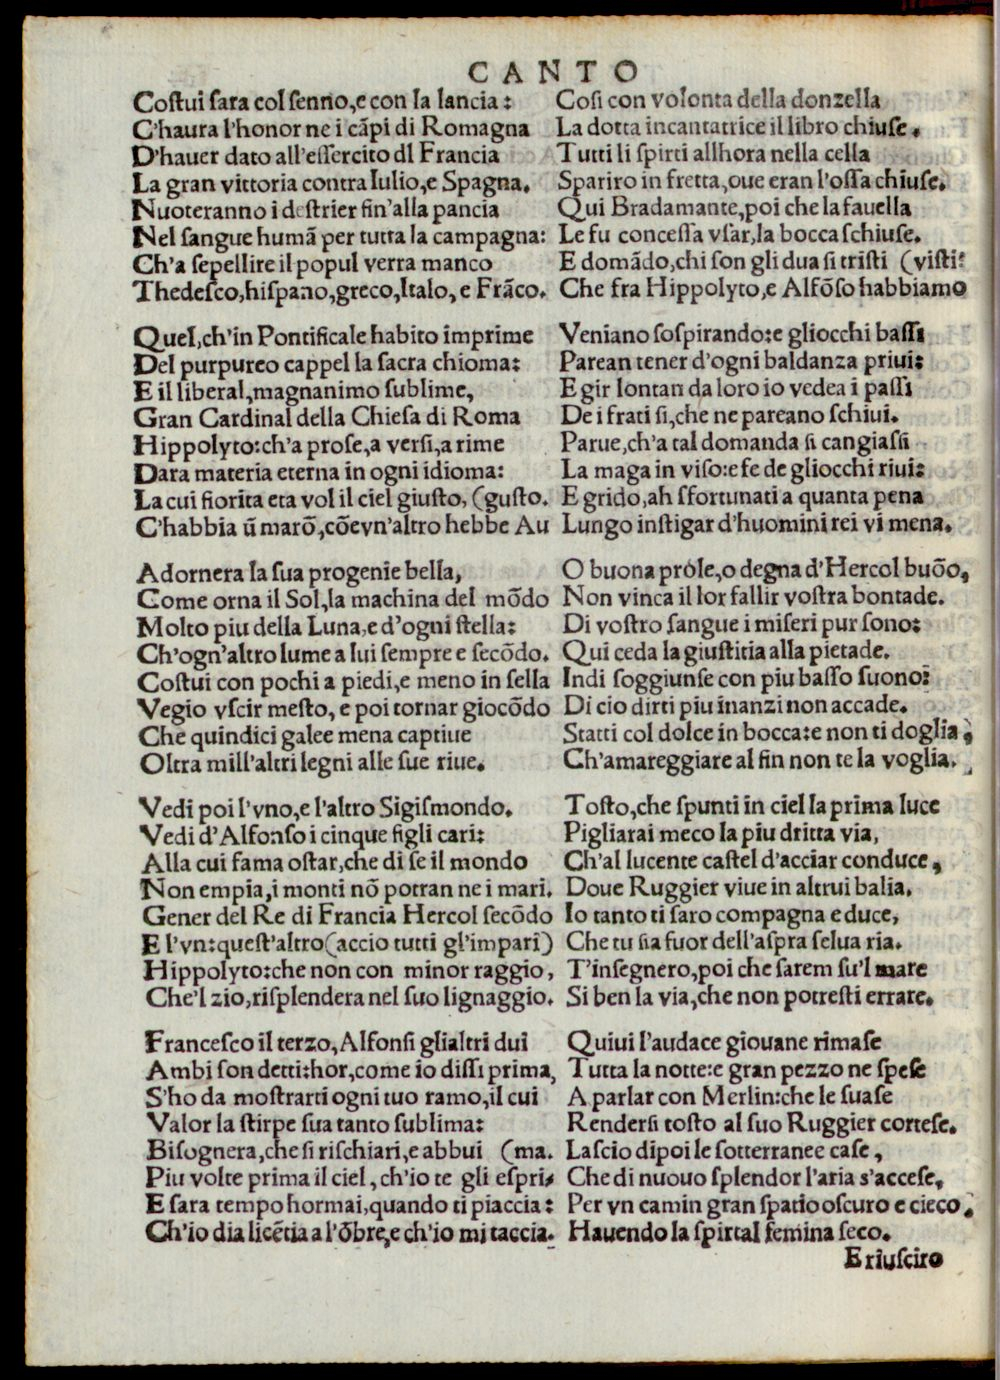 CANTO
Costui sara col senno,e con la lancia:
C'haura l'honor ne i cãpi di Romagna
D'hauer dato all'essercito dl Francia
La gran vittoria contra Iulio,e Spagna.
Nuoteranno i destrier fin'alla pancia
Nel sangue humã per tutta la campagna:
Ch'a sepellire il popul verra manco
Thedesco,hispano,greco,Italo, e Frãco.
Quel,ch'in Pontificale habito imprime
Del purpureo cappel la sacra chioma:
E il liberal,magnanimo sublime,
Gran Cardinal della Chiesa di Roma
Hippolyto:ch'a prose,a versi,a rime
Dara materia eterna in ogni idioma:
La cui fiorita eta vol il ciel giusto, (gusto.
C'habbia ũ marõ,cõevn'altro hebbe Au
Adornera la sua progenie bella,
Come orna il Sol,la machina del mõdo
Molto piu della Luna,e d'ogni stella:
Ch'ogn'altro lume a lui sempre e secõdo.
Costui con pochi a piedi,e meno in sella
Vegio vscir mesto, e poi tornar giocõdo
Che quindici galee mena captiue
Oltra mill'altri legni alle sue riue.
Vedi poi l'vno,e l'altro Sigismondo.
Vedi d'Alfonso i cinque figli cari:
Alla cui fama ostar,che di se il mondo
Non empia,i monti nõ potran ne i mari.
Gener del Re di Francia Hercol secõdo
E l'vn:quest'altro(accio tutti gl'impari)
Hippolyto:che non con minor raggio,
Che'l zio,risplendera nel suo lignaggio.
Francesco il terzo,Alfonsi glialtri dui
Ambi son detti:hor,come io dissi prima,
S'ho da mostrarti ogni tuo ramo,il cui
Valor la stirpe sua tanto sublima:
Bisognera,che si rischiari,e abbui (ma.
Piu volte prima il ciel,ch'io te gli espri-
E sara tempo hormai,quando ti piaccia:
Ch'io dia licẽtia a l'õbre,e ch'io mi taccia.
Cosi con volonta della donzella
La dotta incantatrice il libro chiuse.
Tutti li spirti allhora nella cella
Spariro in fretta,oue eran l'ossa chiuse.
Qui Bradamante,poi che la fauella
Le fu concessa vsar,la bocca schiuse.
E domãdo,chi son gli dua si tristi (visti?
Che fra Hippolyto,e Alfõso habbiamo
Veniano sospirando:e gliocchi bassi
Parean tener d'ogni baldanza priui:
E gir lontan da loro io vedea i passi
De i frati si,che ne pareano schiui.
Parue,ch'a tal domanda si cangiassi
La maga in viso:e fe de gliocchi riui:
E grido,ah sfortunati a quanta pena
Lungo instigar d'huomini rei vi mena.
O buona próle,o degna d'Hercol buõo,
Non vinca il lor fallir vostra bontade.
Di vostro sangue i miseri pur sono:
Qui ceda la giustitia alla pietade.
Indi soggiunse con piu basso suono:
Di cio dirti piu inanzi non accade.
Statti col dolce in bocca:e non ti doglia,
Ch'amareggiare al fin non te la voglia.
Tosto,che spunti in ciel la prima luce
Pigliarai meco la piu dritta via,
Ch'al lucente castel d'acciar conduce,
Doue Ruggier viue in altrui balia.
Io tanto ti saro compagna e duce,
Che tu sia fuor dell'aspra selua ria.
T'insegnero,poi che sarem su'l mare
Si ben la via,che non potresti errare.
Quiui l'audace giouane rimase
Tutta la notte:e gran pezzo ne spese
A parlar con Merlin:che le suase
Rendersi tosto al suo Ruggier cortese.
Lascio dipoi le sotterranee case,
Che di nuouo splendor l'aria s'accese,
Per vn camin gran spatio oscuro e cieco,
Hauendo la spirtal femina seco.
E riusciro